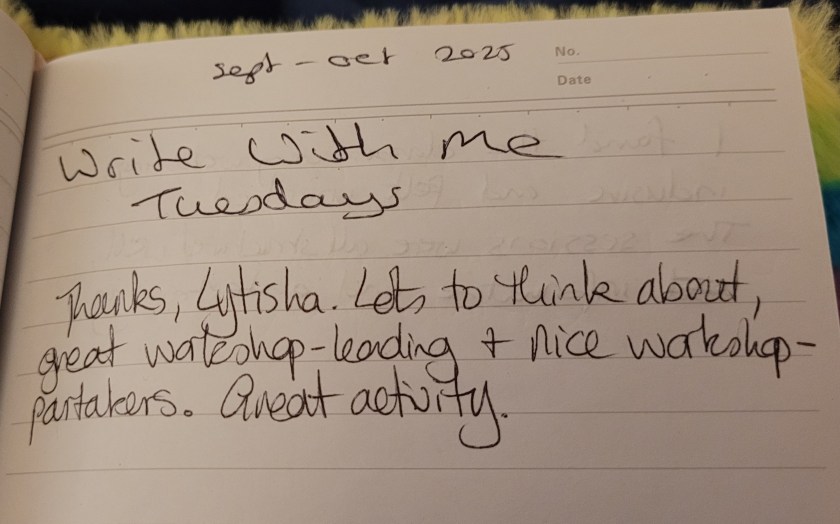 sept - oct 2025
No.
Date
Write With Me
Tuesdays
Thanks, Lytisha. Lots to think about,
great workshop-leading + nice workshop-
partakers. Great activity.